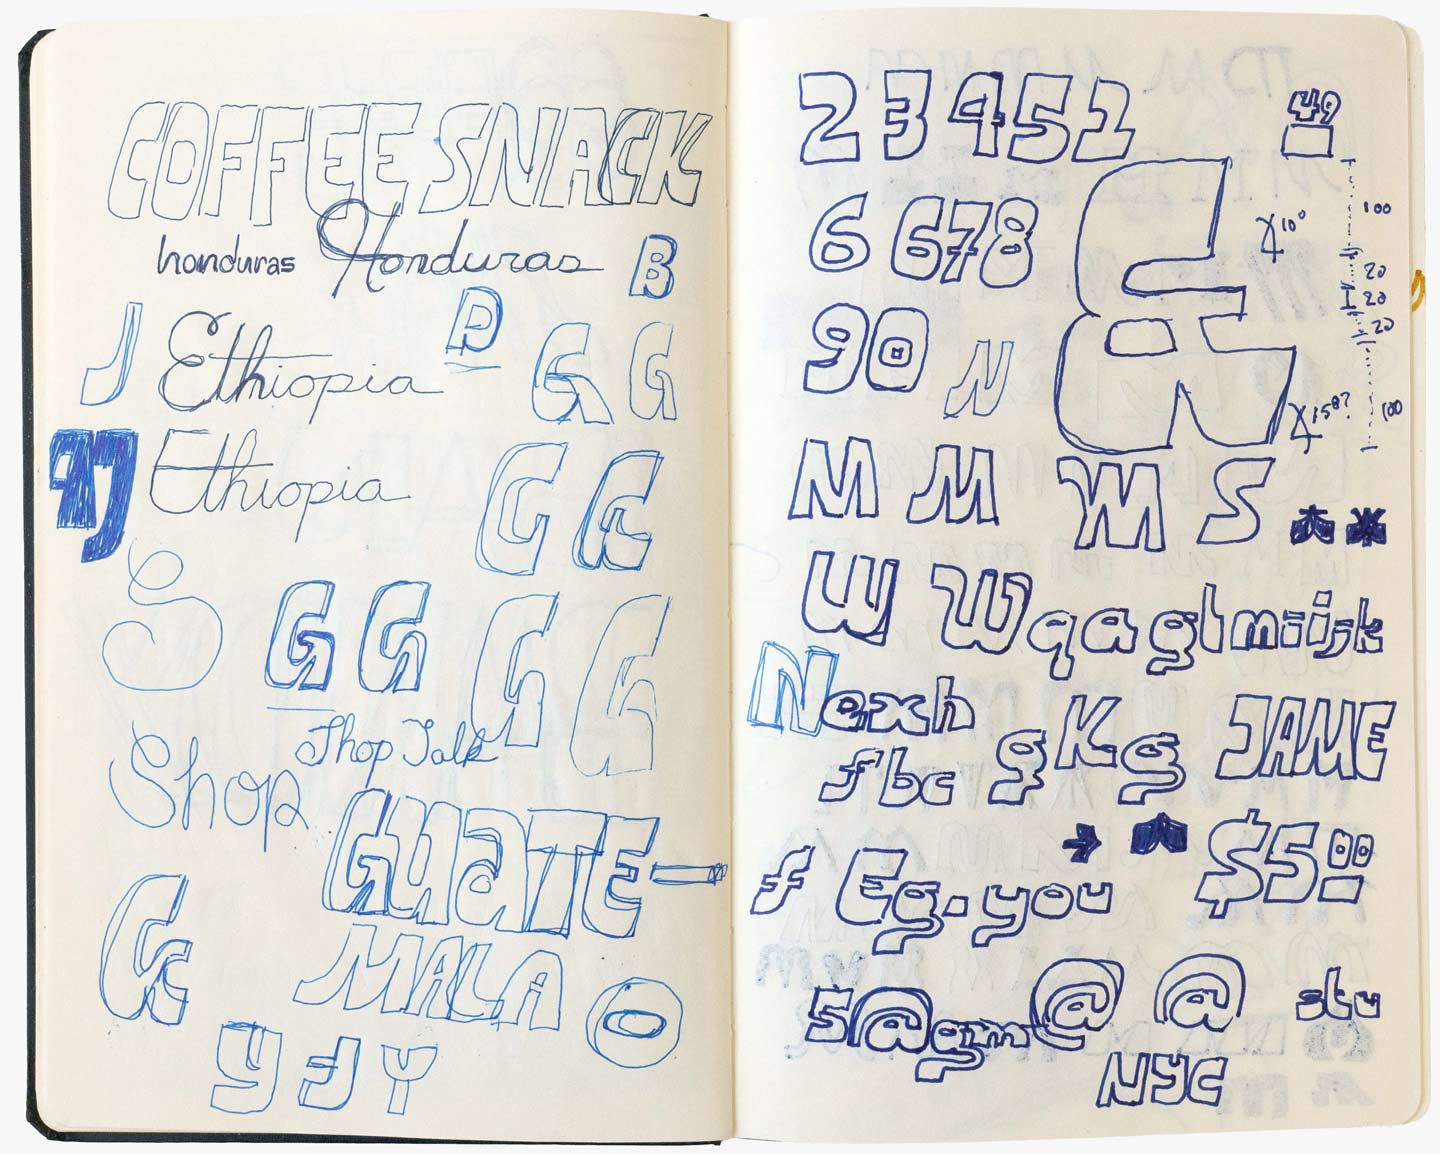 COFFEE SNACK
honduras Honduras B
J Ethiopia D G G
Ethiopia G G
S G G G G
Shop Talk
Shop
GUATE—
MALA
G O
y J Y
2 3 4 5 2 49
6 6 7 8 10° 100
20
20
20
90 N
15°? 100
M M M S
W W q a g l m i i j k
N e x h
f b c g K g JAME
$5.00
f Eg.-you
5@gm @ @ stu
NYC